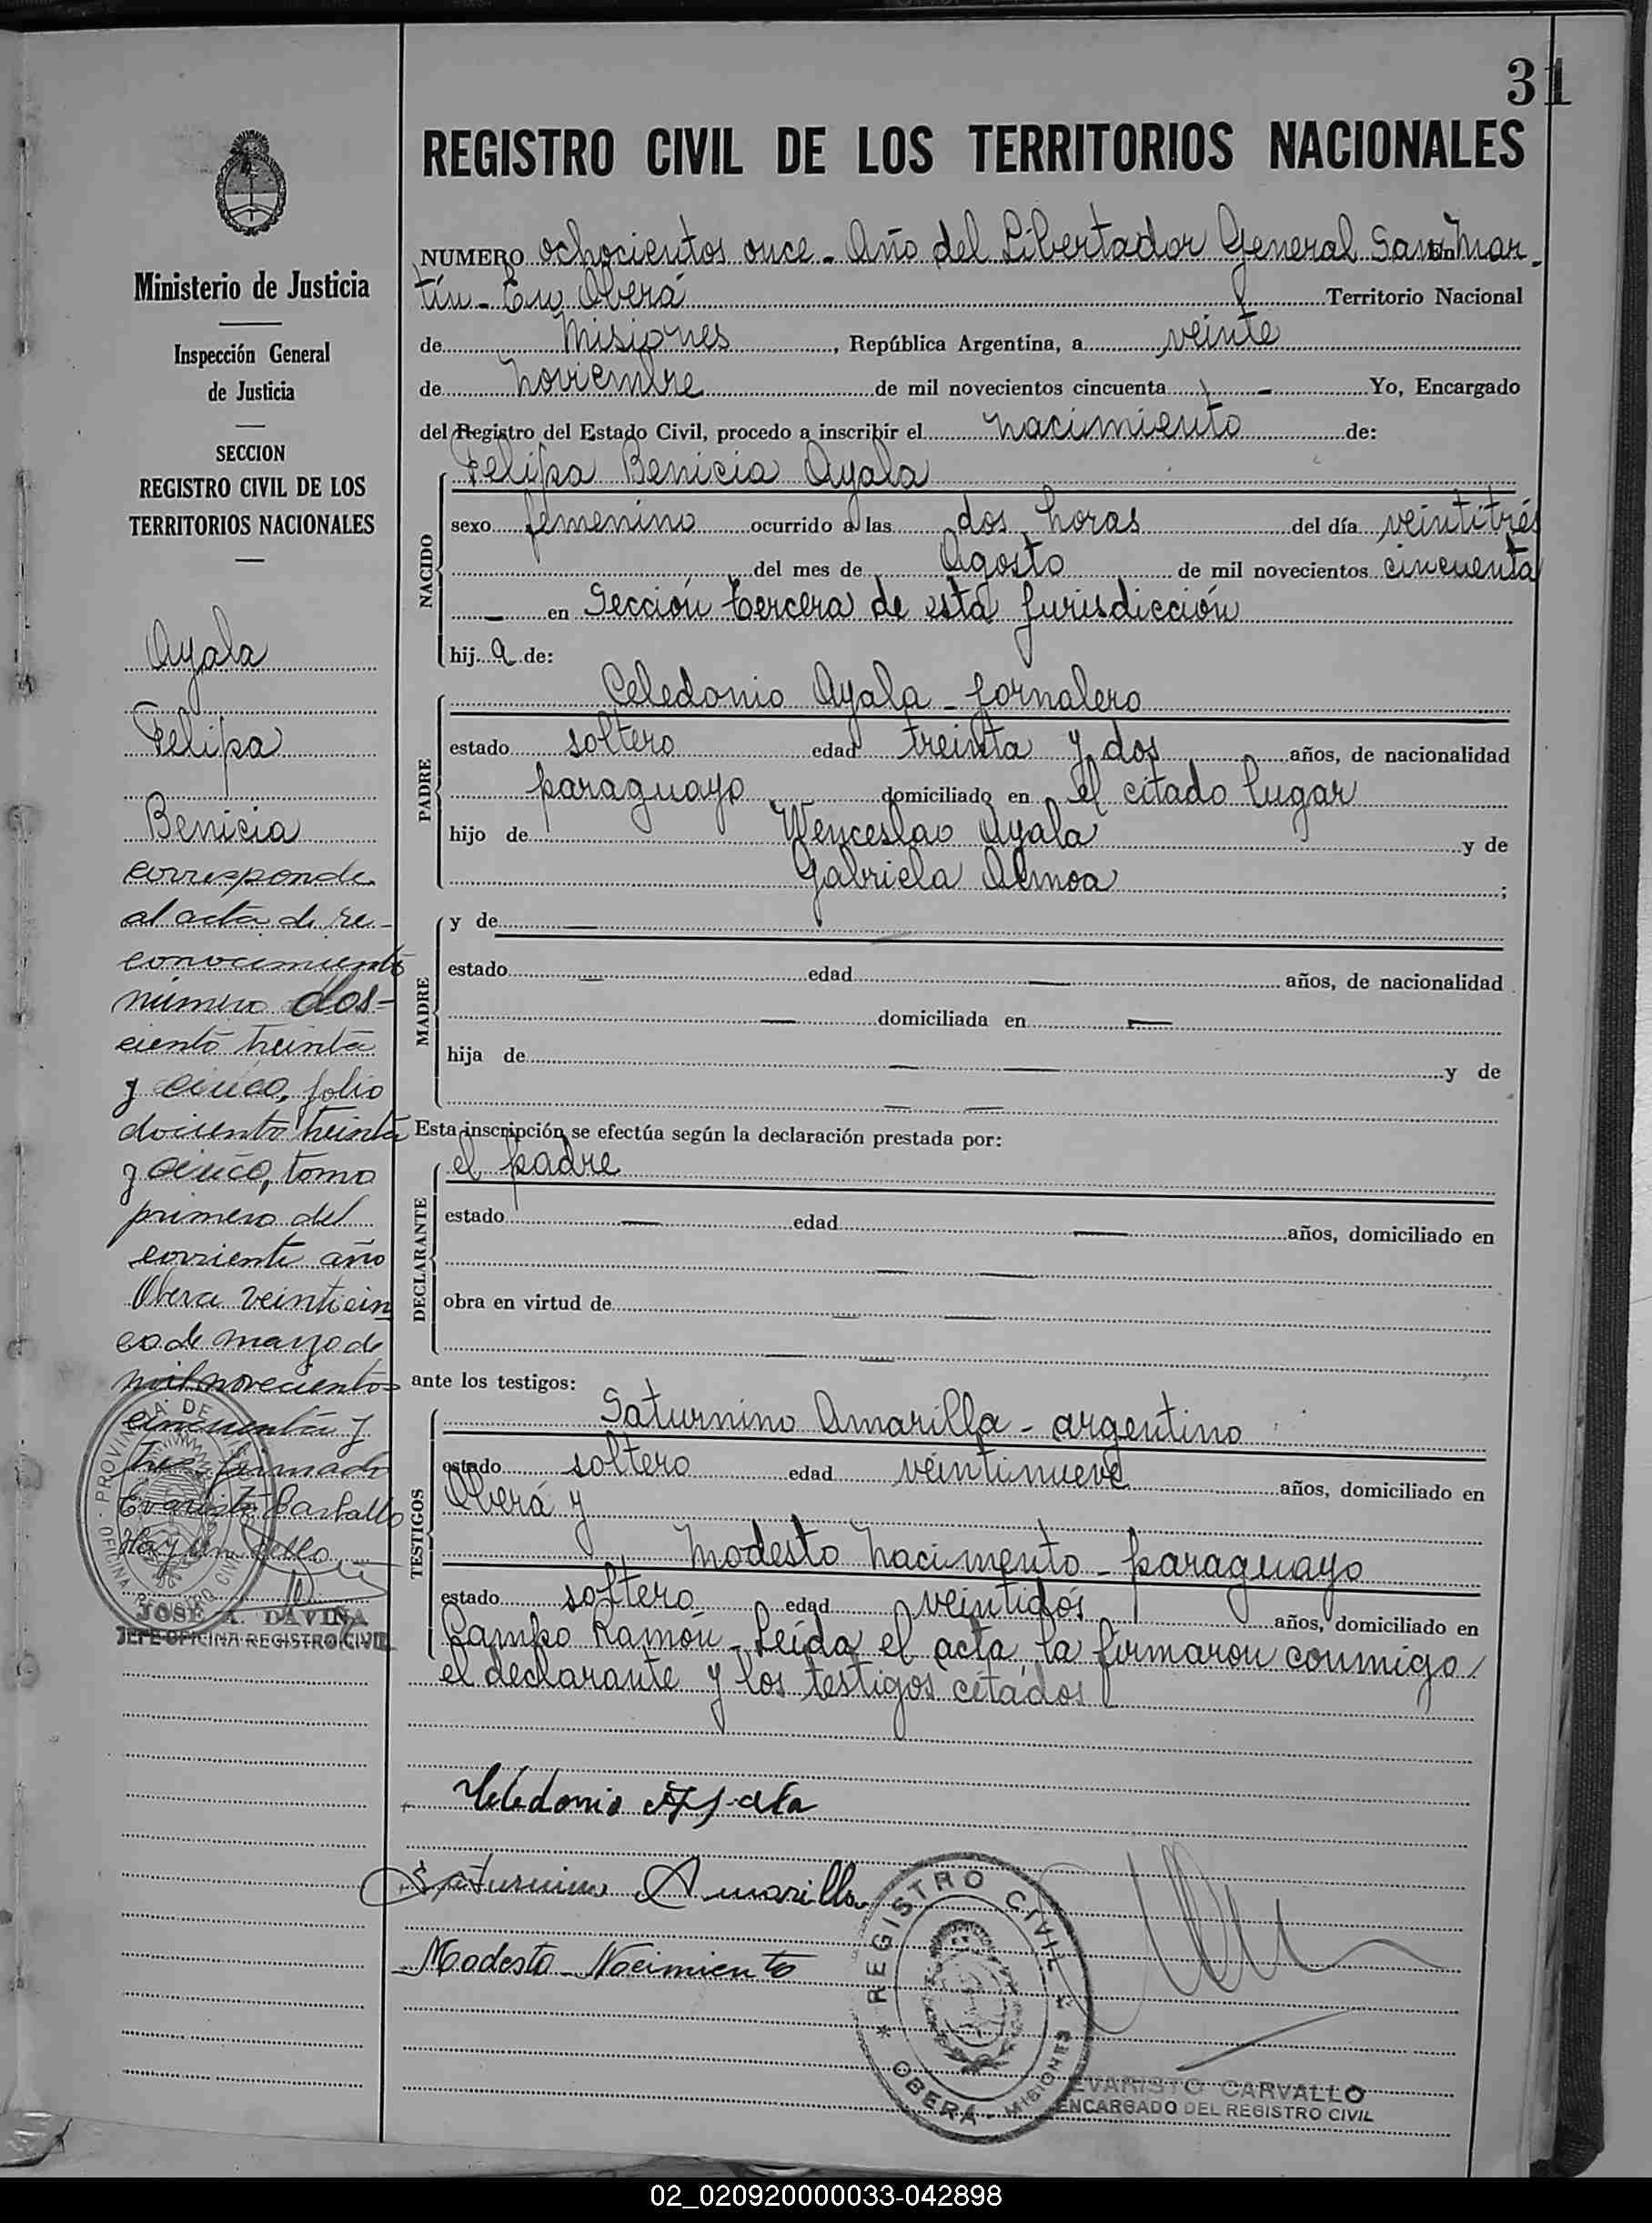 31
REGISTRO CIVIL DE LOS TERRITORIOS NACIONALES
Ministerio de Justicia
Inspección General
de Justicia
SECCION
REGISTRO CIVIL DE LOS
TERRITORIOS NACIONALES
Ayala
Felipa
Benicia
corresponde
al acta de re-
conocimiento
número dos-
ciento treinta
y cinco, folio
dociento treinta
y cinco, tomo
primero del
corriente año
Obera veinticin
co de marzo de
mil novecientos
cincuenta y
tres firmado
Evaristo Carballo
Hay un sello
PROVINCIA DE
OFICINA REGISTRO CIVIL
JOSE A. DAVIÑA
JEFE OFICINA REGISTRO CIVIL
NUMERO ochocientos once - Año del Libertador General San Mar-
tín - En Oberá Territorio Nacional
de Misiones, República Argentina, a veinte
de Noviembre de mil novecientos cincuenta - Yo, Encargado
del Registro del Estado Civil, procedo a inscribir el nacimiento de:
NACIDO
Felipa Benicia Ayala
sexo femenino ocurrido a las dos horas del día veintitrés
del mes de Agosto de mil novecientos cincuenta
- en Sección tercera de esta jurisdicción
hij a de:
PADRE
Celedonio Ayala - jornalero
estado soltero edad treinta y dos años, de nacionalidad
paraguayo domiciliado en el citado lugar
hijo de Wenceslao Ayala y de
Gabriela ;
MADRE
y de —
estado — edad — años, de nacionalidad
— domiciliada en —
hija de — — y de
— —
Esta inscripción se efectúa según la declaración prestada por:
DECLARANTE
el padre
estado — edad — años, domiciliado en
— —
obra en virtud de — —
— —
ante los testigos:
TESTIGOS
Saturnino Amarilla - argentino
estado soltero edad veintinueve años, domiciliado en
Oberá y
Modesto Nacimento - paraguayo
estado soltero edad veintidós años, domiciliado en
Campo Ramón - Leída el acta, la firmaron conmigo
el declarante y los testigos citados
Celedonio Ayala
Saturnino Amarilla
Modesto Nacimiento
REGISTRO CIVIL
OBERÁ - MISIONES
EVARISTO CARVALLO
ENCARGADO DEL REGISTRO CIVIL
02_020920000033-042898